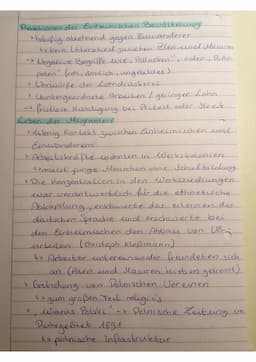 Reaktionen der Einheimischen Bevölkerung
→ häufig abstoßend gegen Einwanderer
↳ kein Unterschied zwischen Polen und Masuren
→ Negative Begriffe wie „Polacken", oder „Ruhr-
polen" (rein, ungebildet)
→ Vorwürfe der Lohndrückerei
→ Untergeordnete Arbeiten / geringer Lohn
→ fristlose Kündigung bei Protest oder Streik
Leben der Migranten
• Wenig Kontakt zwischen Einheimischen und
Einwanderern
• Arbeitskräfte wohnten in Werkskolonien
↳ meist junge Männer ohne Schulbildung
• Die Konzentration in den Werksiedlungen
war verantwortlich für die ethnische
Abkapslung, erschwerte das erlernen der
deutschen Sprache und erschwerte bei
den Einheimischen den Abbau von
urteilen (Christoph Kleßmann)
↳ Arbeiter untereinander freundeten sich
an (Polen und Masuren blieben getrennt)
• Gründung von Polnischen Vereinen
↳ zum großen Teil religiös
• „Wiarus Polski" → Polnische Zeitung im
Ruhrgebiet 1891
↳ polnische Infrastruktur